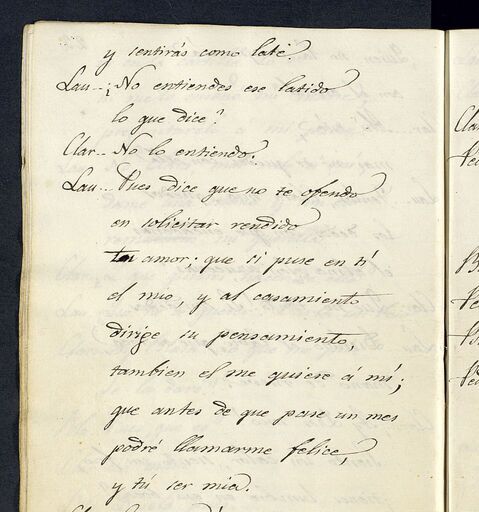 y sentirás como late.
Lau-- ¿No entiendes ese latido
lo que dice?
Clar-- No lo entiendo.
Lau-- Pues dice que no te ofendo
en solicitar rendido
tu amor; que si puse en tí
el mío, y al casamiento
dirige su pensamiento,
tambien el me quiere á mí;
que antes de que pase un mes
podré llamarme felice,
y tú ser mia.
Cla
Pe